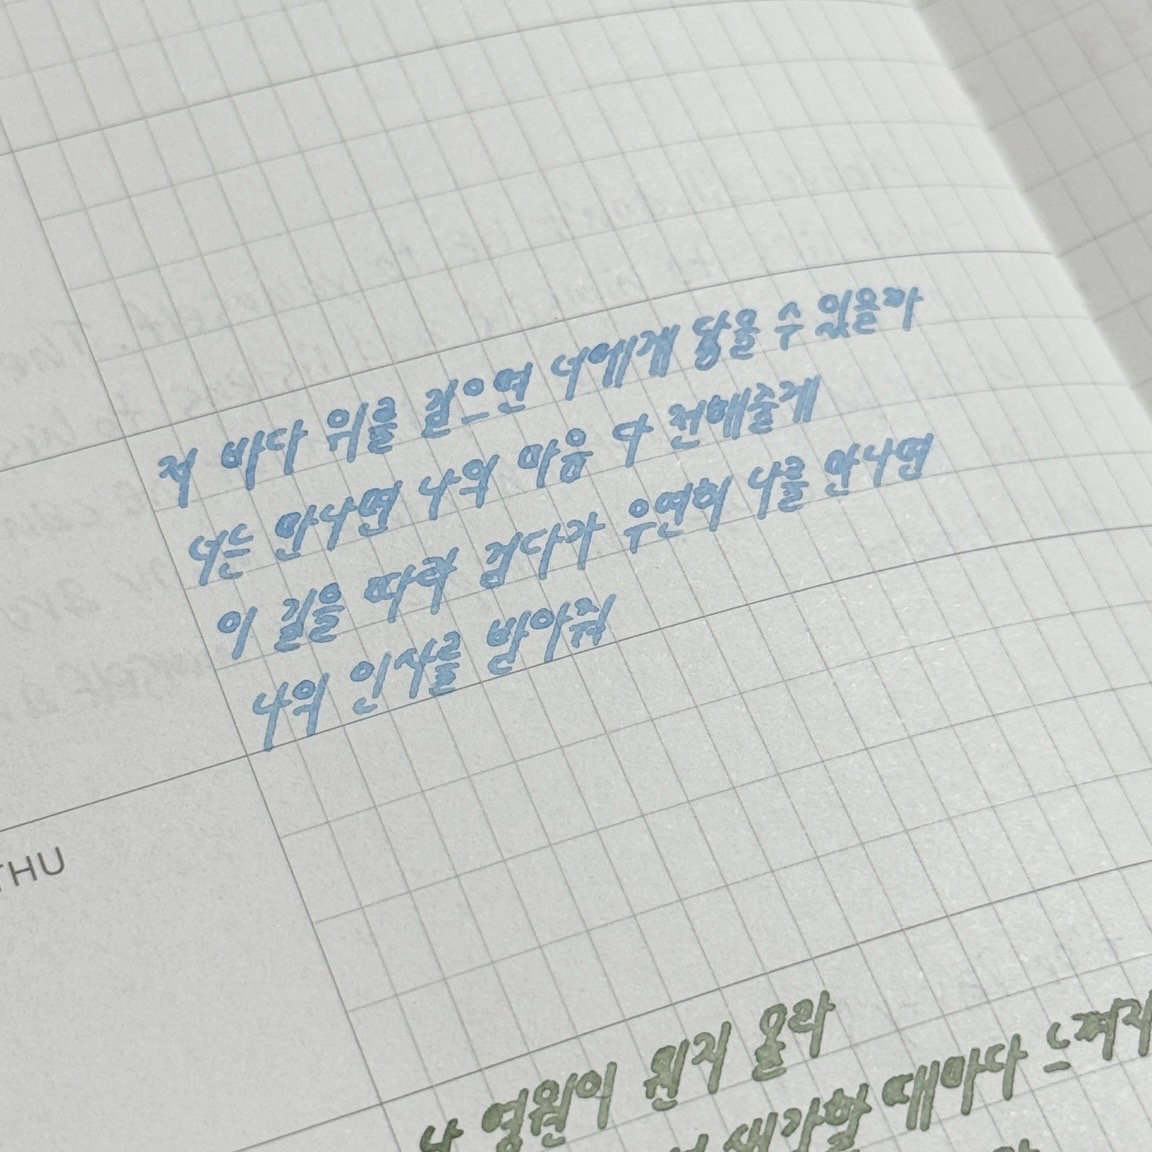 저 바다 위를 걸으면 너에게 닿을 수 있을까
너는 만나면 나의 마음 다 전해줄게
이 길을 따라 걷다가 우연히 나를 만나면
나의 인사를 받아줘
THU
난 영원이 뭔지 몰라
생각할 때마다 느껴지